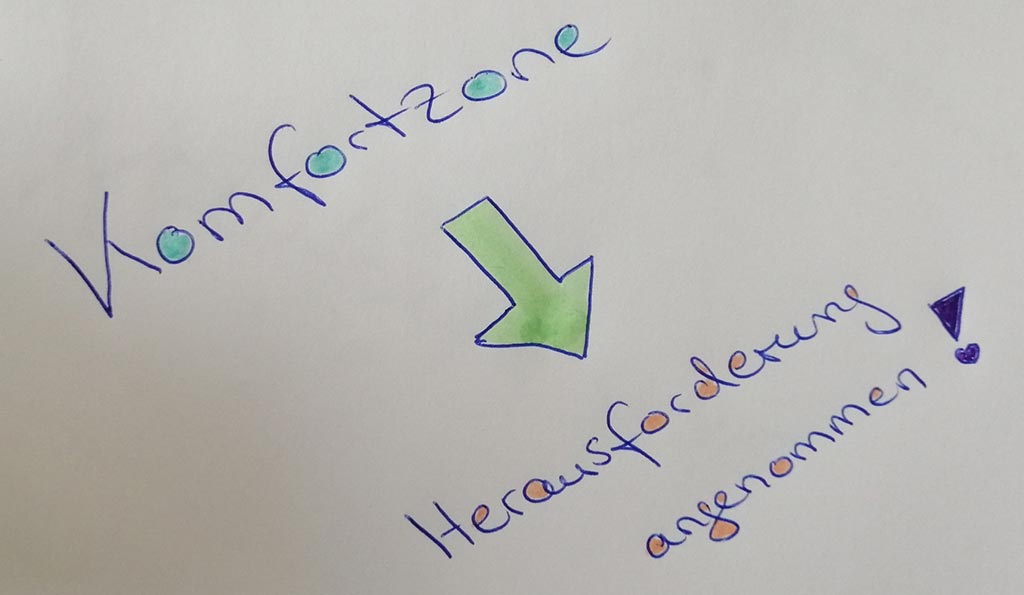 Komfortzone
Herausforderung
angenommen!